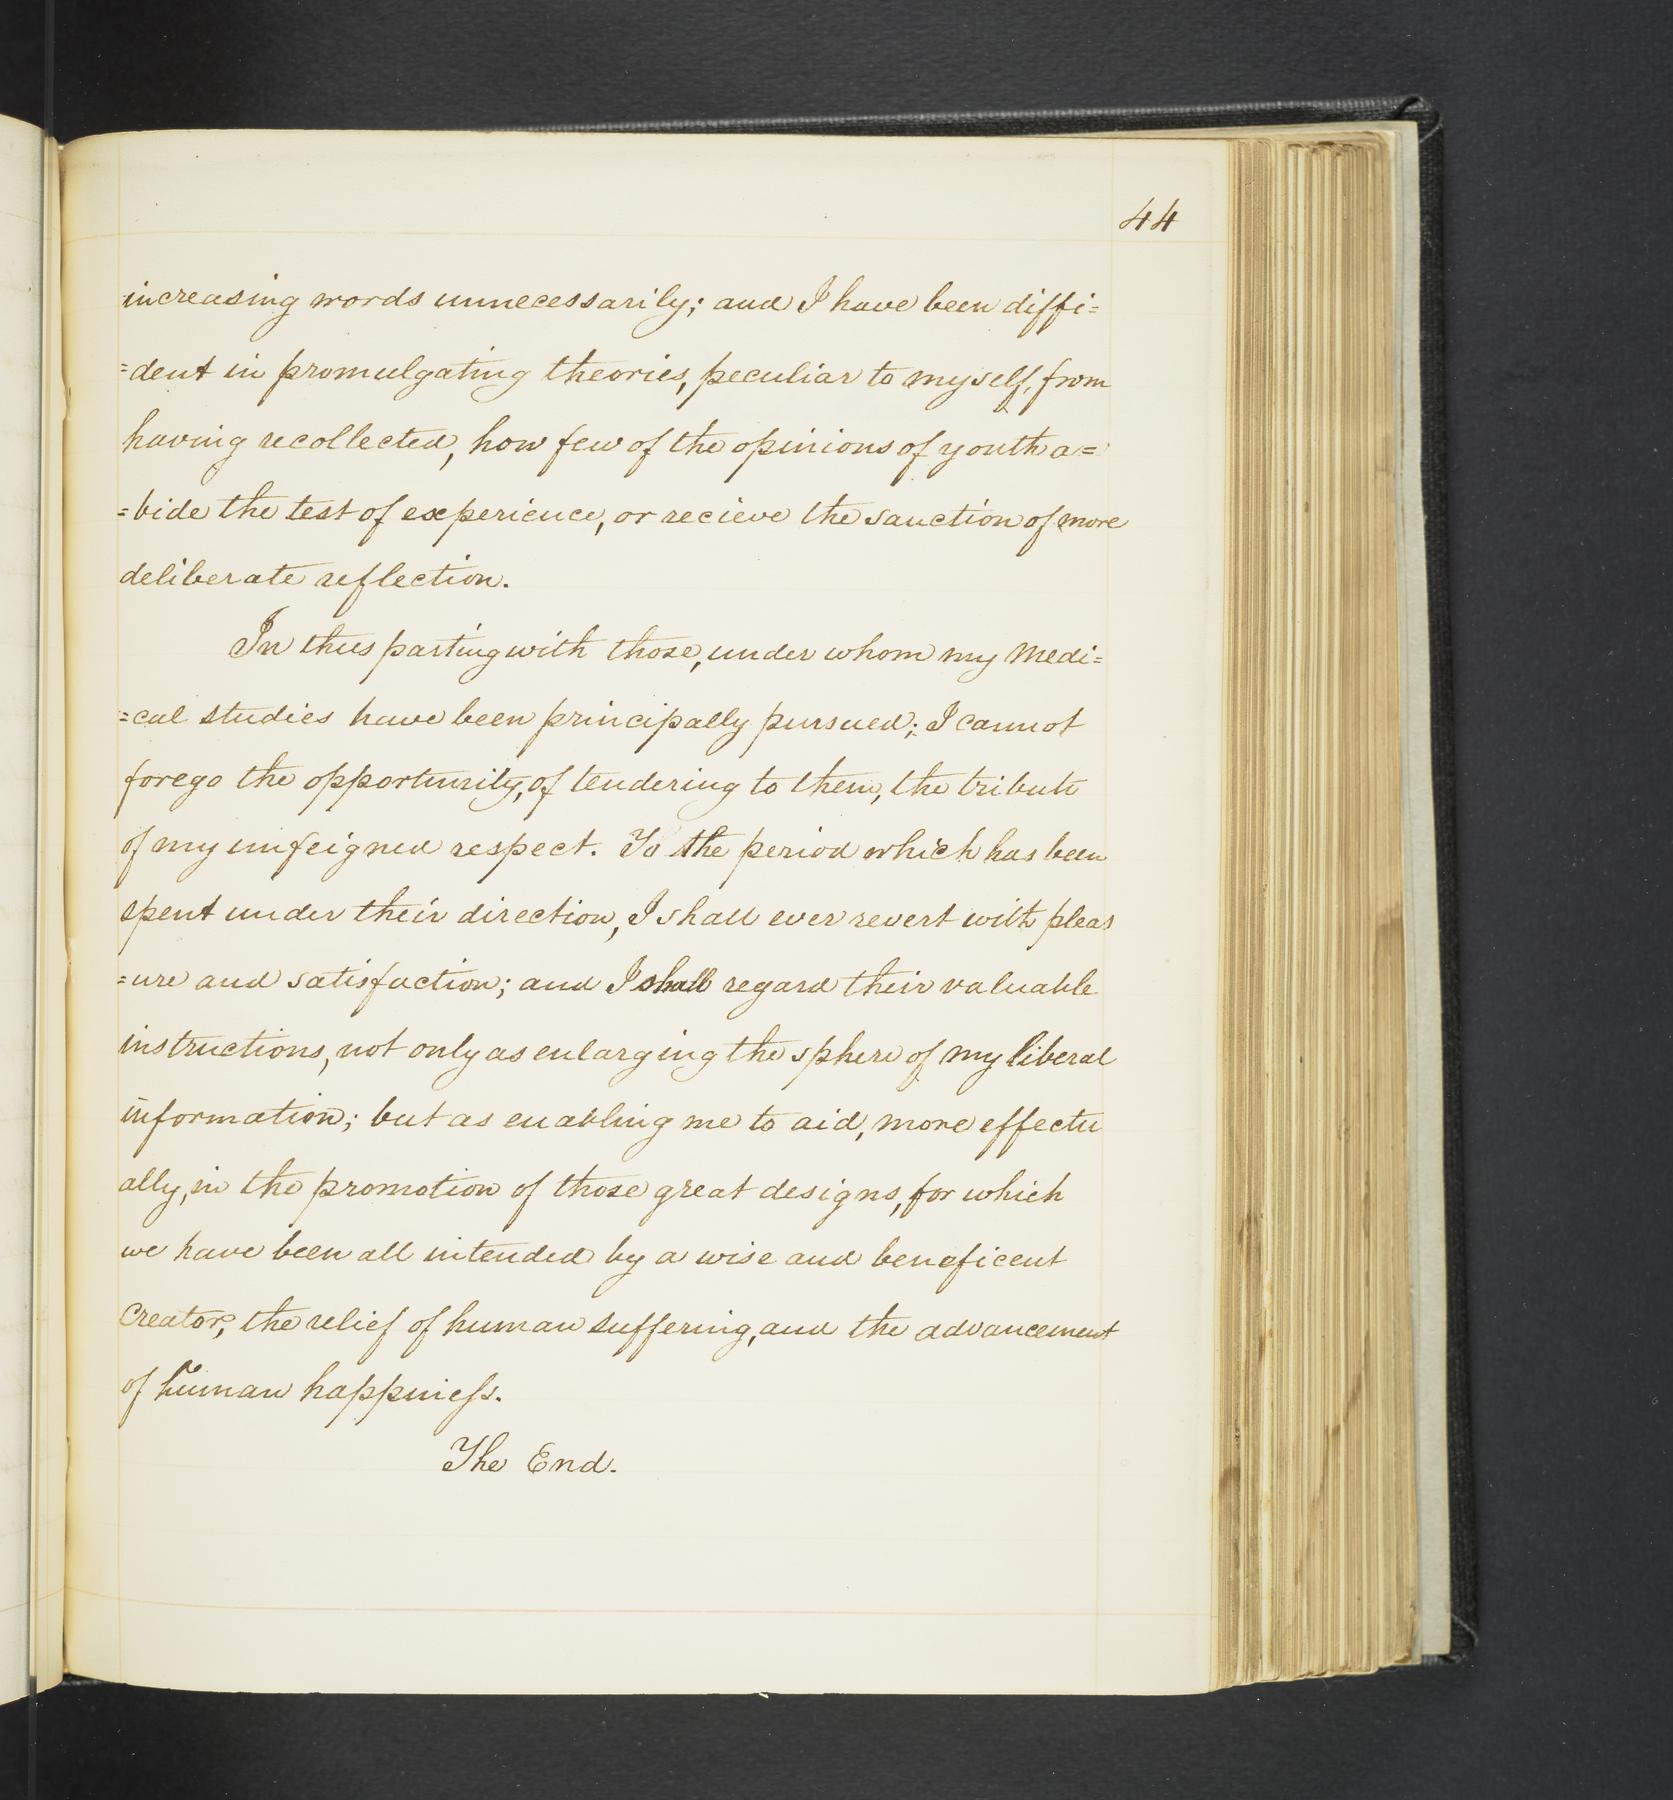 44
increasing words unnecessarily; and I have been diffi=
=dent in promulgating theories, peculiar to myself, from
having recollected, how few of the opinions of youth a=
=bide the test of experience, or recieve the sanction of more
deliberate reflection.
In thus parting with those, under whom my Medi=
=cal studies have been principally pursued; I cannot
forego the opportunity, of tendering to them, the tribute
of my unfeigned respect. To the period which has been
spent under their direction, I shall ever revert with pleas
=ure and satisfaction; and I shall regard their valuable
instructions, not only as enlarging the sphere of my liberal
information; but as enabling me to aid, more effectu
ally, in the promotion of those great designs, for which
we have been all intended by a wise and beneficent
Creator; the relief of human suffering, and the advancement
of human happineſs.
The End.